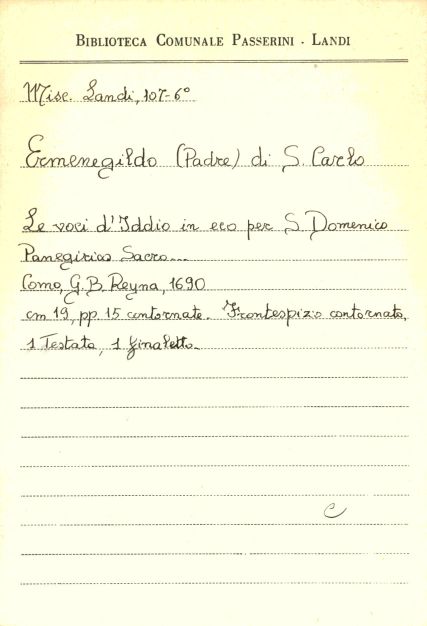 BIBLIOTECA COMUNALE PASSERINI - LANDI
Misc. Landi, 107-6°
Ermenegildo (Padre) di S. Carlo
Le voci d'Iddio in eco per S. Domenico
Panegirico Sacro...
Como, G. B. Reyna, 1690
cm 19, pp. 15 contornate. Frontespizio contornato,
1 Testata, 1 finaletto.
C